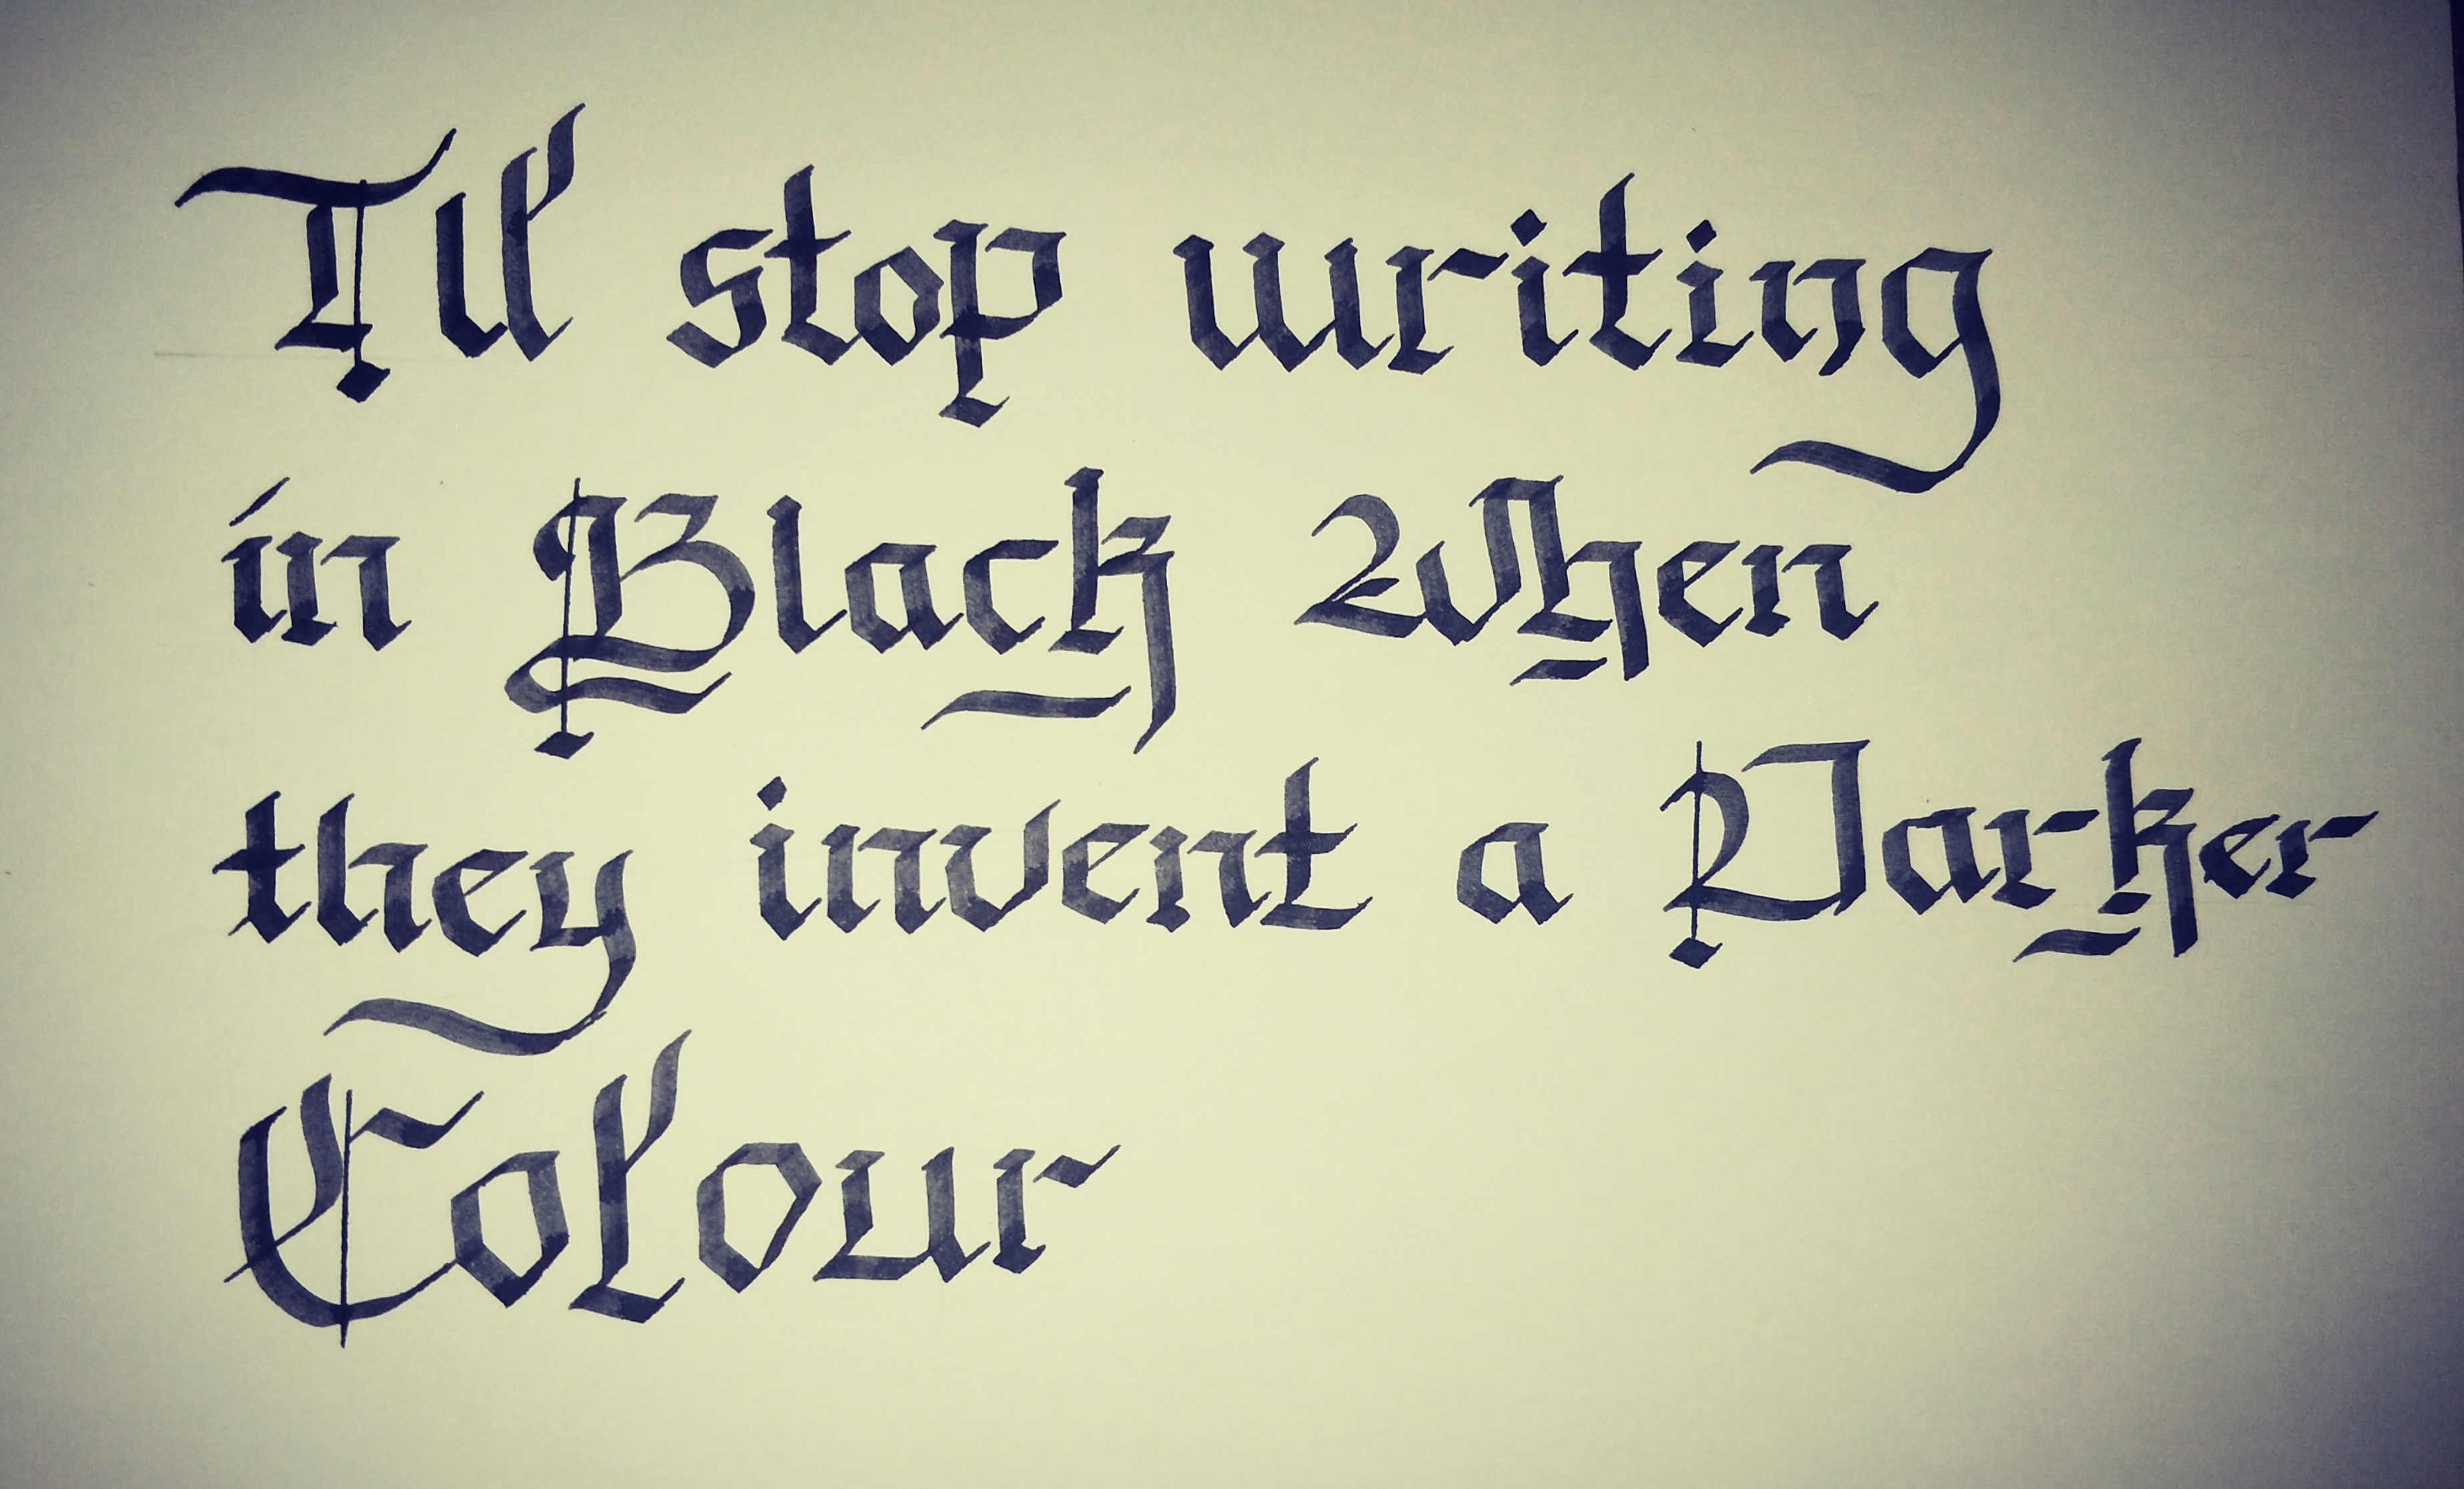 I'll stop writing
in Black When
they invent a Darker
Colour